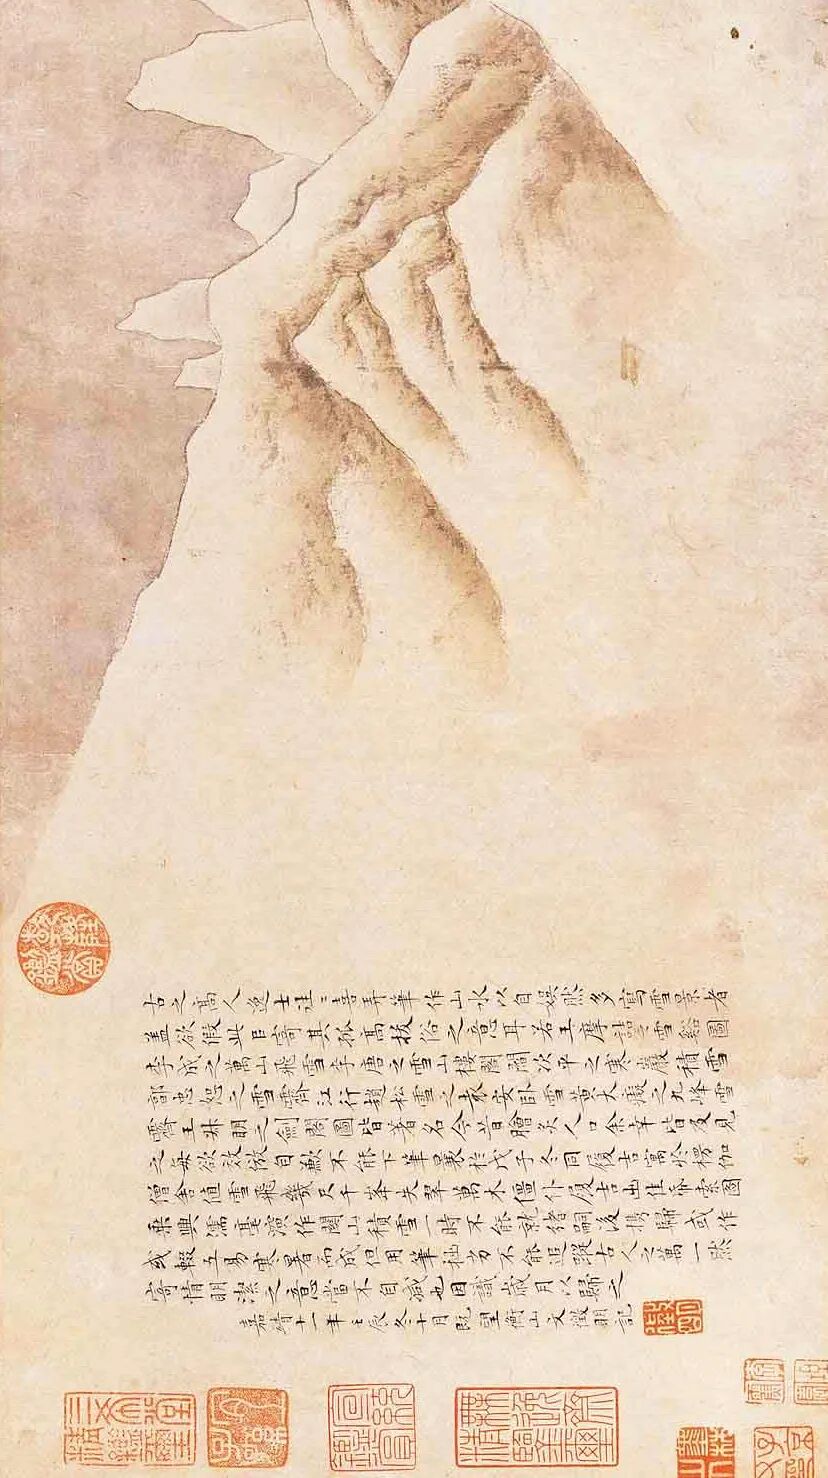 古之高人逸士往〻喜弄筆作山水以自娛然多寫雪景者
盖欲假此以寄其孤高拔俗之意耳若王摩詰之雪谿圖
李成之萬山飛雪李唐之雪山樓閣閻次平之寒巖積雪
郭忠恕之雪霽江行趙松雪之袁安卧雪黃大癡之九峰雪
霽王叔明之劍閣圖皆著名今昔膾炙人口余幸皆及見
之每欲效倣自歉不能下筆曩於戊子冬同履吉寓於楞伽
僧舍值雪飛幾尺千峯失翠萬木僵仆履吉出佳帋索圖
乘興濡毫演作關山積雪一時不能就緒嗣後携歸或作
或輟五易寒暑而成但用筆拙劣不能追蹤古人之萬一然
寄情明潔之意當不自減也因識歲月以歸之
嘉靖十一年壬辰冬十月既望衡山文徵明記
徵明
乾隆鑑賞
三希堂精鑑璽
宜子孫